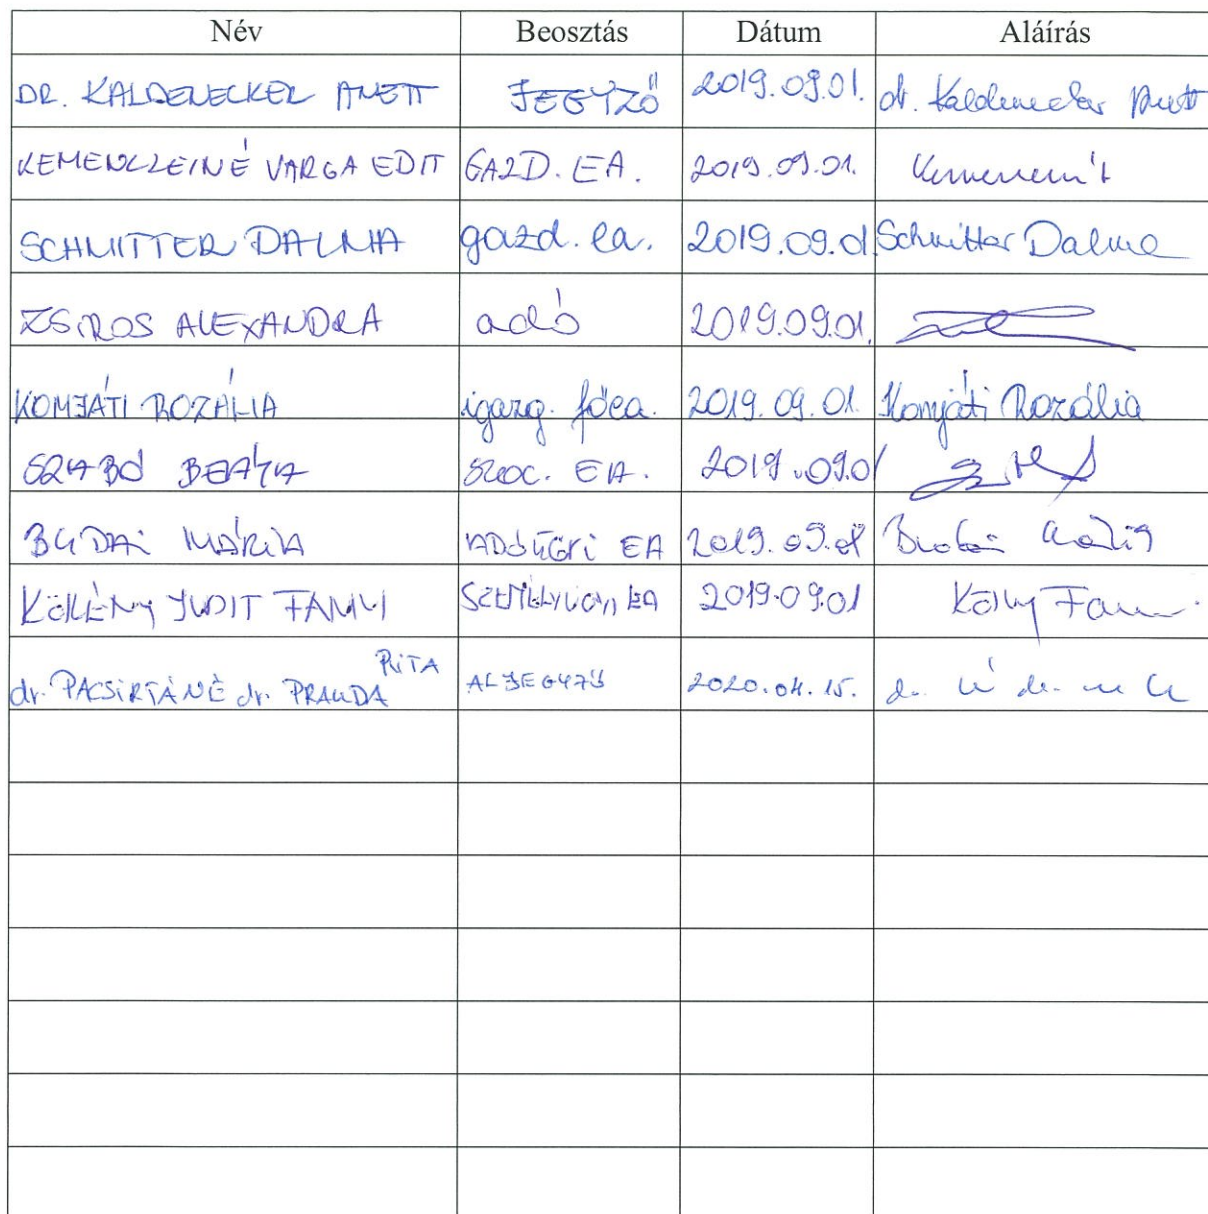 Név Beosztás Dátum Aláírás
DR. KALDENECKER ANETT JEGYZŐ 2019.09.01. dr. Kaldenecker Anett
KEMENCZEINÉ VARGA EDIT GAZD. EA. 2019.09.01.
SCHMITTER DALMA gazd. ea. 2019.09.01 Schmitter Dalma
ZSIROS ALEXANDRA adó 2019.09.01.
KOMJÁTI ROZÁLIA igazg. főea. 2019.09.01. Komjáti Rozália
SZABÓ BEÁTA SZOC. EA. 2019.09.01
BUDAI MÁRIA ADÓÜGYI EA 2019.09.01 Budai Mária
KÖKÉNY JUDIT FANNI EA 2019.09.01
RITA
dr. PACSIRTÁNÉ dr. PRAUDA ALJEGYZŐ 2020.04.15.